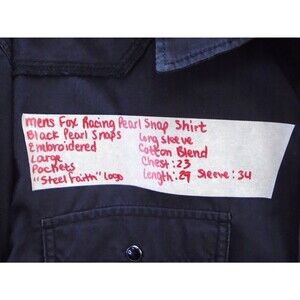 Mens Fox Racing Pearl Snap Shirt
Black Pearl Snaps
Embroidered
Large
Pockets
"Steel Faith" Logo
Long Sleeve
Cotton Blend
Chest: 23
Length: 29 Sleeve: 34